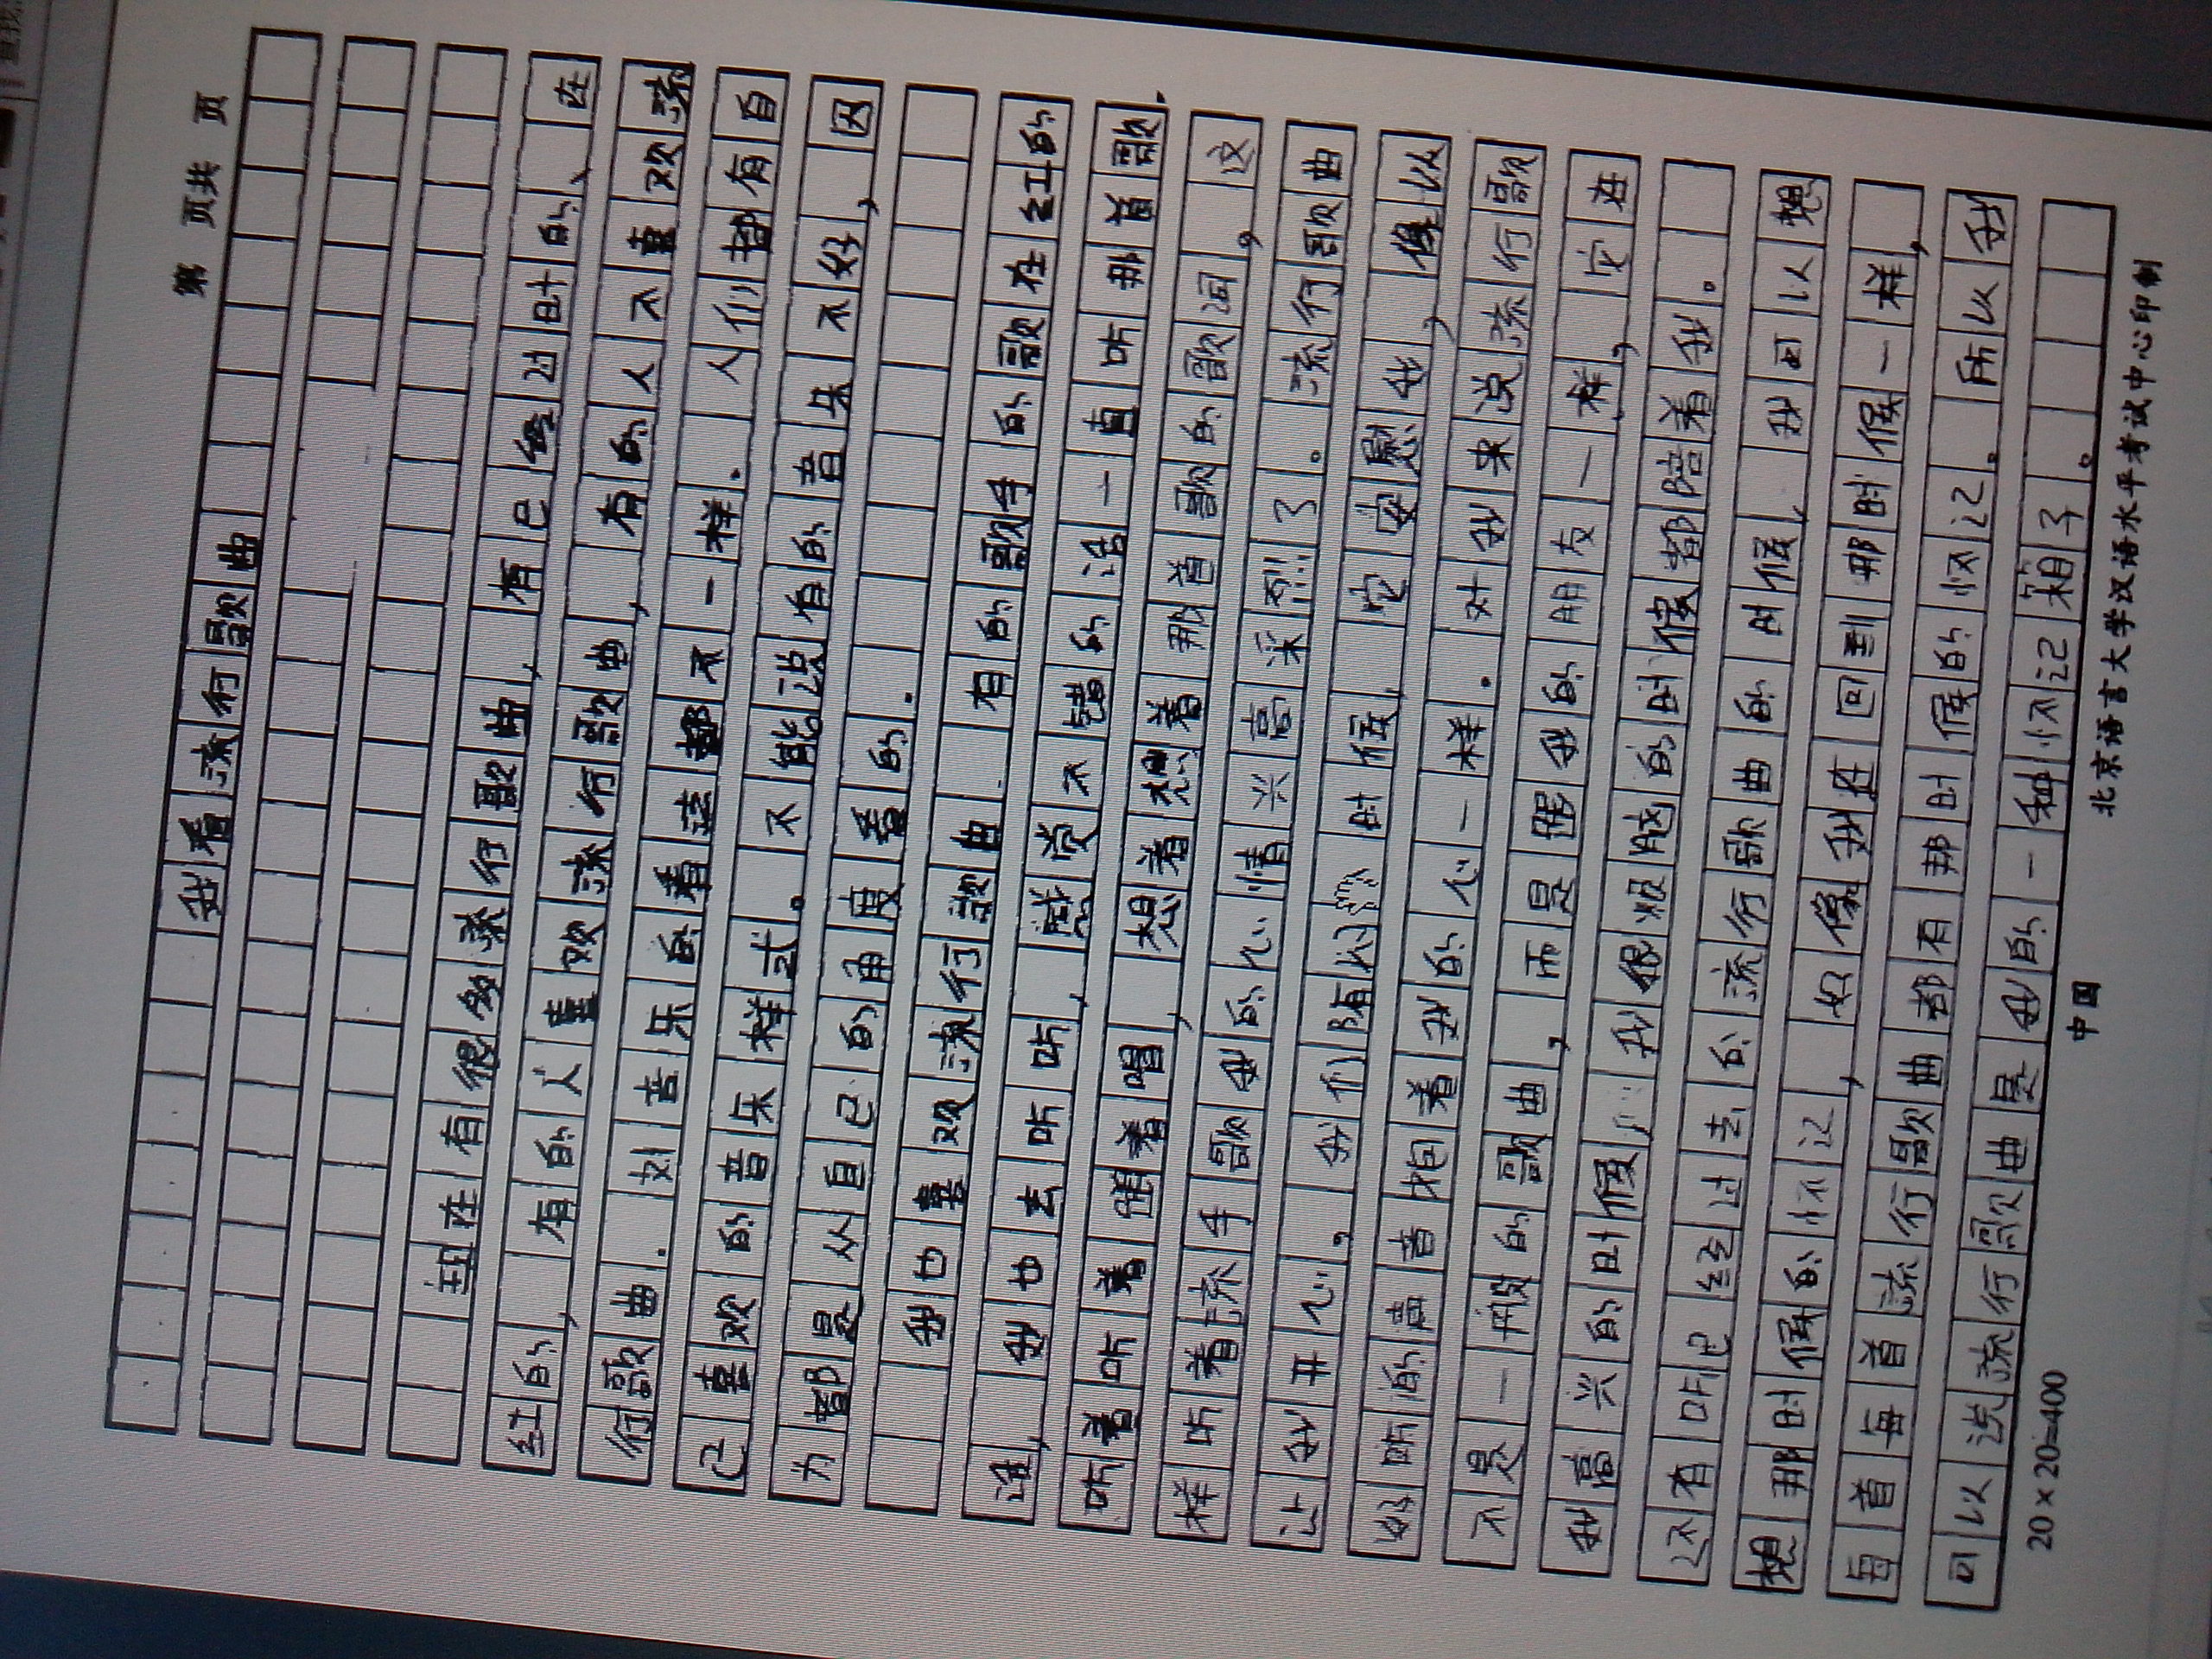 第 页共 页
我看流行歌曲
现在有很多流行歌曲，有已经过时的、在
红的，有的人喜欢流行歌曲，有的人不喜欢流
行歌曲．对音乐的看法都不一样．人们都有自
己喜欢的音乐样式。不能说有的音乐不好，因
为都是从自己的角度看的．
我也喜欢流行歌曲．有的歌手的歌在红的
话，我也去听听，感觉不错的话一直听那首歌．
听着听着跟着唱，想着想着那首歌的歌词，这
样听着流手歌我的心情兴高采烈了。流行歌曲
让我开心。我们 时候，它安慰我，像以
好听的声音抱着我的心一样．对我来说流行歌
不是一般的歌曲，而是跟我的朋友一样，它在
我高兴的时候，我很烦恼的时候都陪着我。
还有听已经过去的流行歌曲的时候，我可以想
想那时候的怀记，好像我在回到那时候一样，
每首每首流行歌曲都有那时候的怀记。所以我
可以说流行歌曲是我的一种怀记箱子。
20×20=400
中国
北京语言大学汉语水平考试中心印制